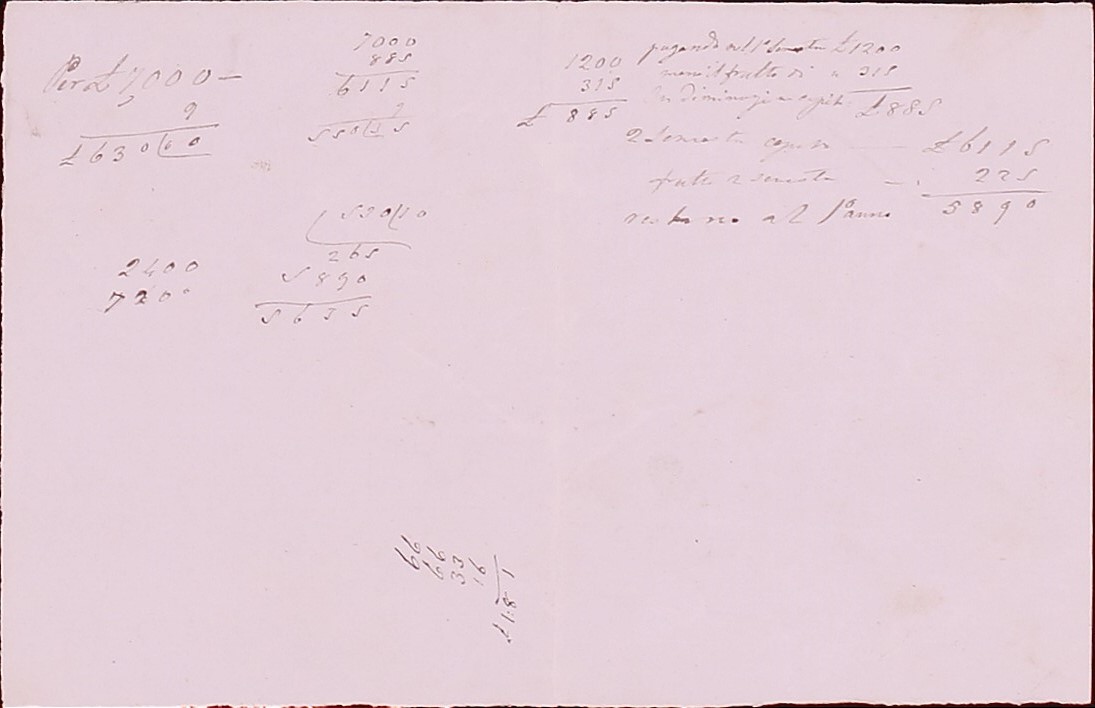 Per £ 7000 –
9
£ 630|60
7000
885
6115
9
550|35
1200
315
£ 885
pagando nel 1º Semestre £ 1200
meno il frutto di " 315
In diminuzione capit. £ 885
2 Semestre capit. — £ 6115
frutto 2 semestre — 225
restano al 1º anno 5890
530|10
265
5890
5635
2400
7200
66
66
33
16
£ 181